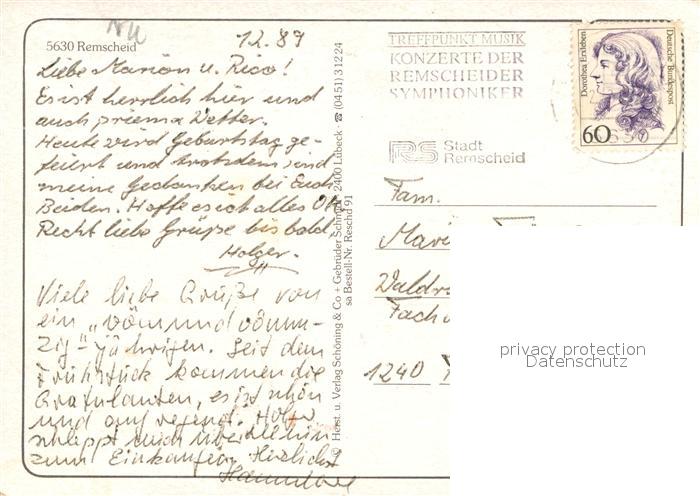 5630 Remscheid
12.89
Liebe Marion u. Rico!
Es ist herrlich hier und
auch prima Wetter.
Heute wird Geburtstag ge-
feiert und trotzdem sind
meine Gedanken bei Euch
Beiden. Hoffe es ist alles OK.
Recht liebe Grüße bis bald
Holger.
Viele liebe Grüße von
ein
zig-jährigen. Seit dem
Frühstück kommen die
Gratulanten, es ist schön
und aufregend. Holger
schleppt mich überall hin
zum Einkaufen. Herzlichst
Hannelore
© Herst. u. Verlag Schöning & Co + Gebrüder Schmidt · 2400 Lübeck · ☎ (04 51) 3 12 24
sa Bestell-Nr. Reschd 91
TREFFPUNKT MUSIK
KONZERTE DER
REMSCHEIDER
SYMPHONIKER
RS Stadt
Remscheid
Dorothea Erxleben
Deutsche Bundespost
60
Fam.
1240
privacy protection
Datenschutz